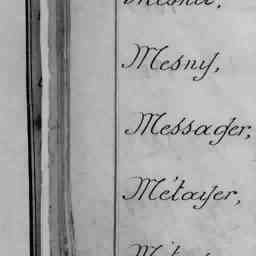 Mesny,
Messager,
Métayer,